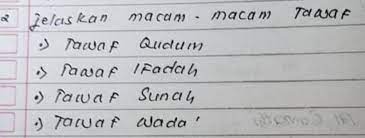 2 Jelaskan macam - macam Tawaf
•) Tawaf Qudum
•) Tawaf Ifadah
•) Tawaf Sunah
•) Tawaf Wada'